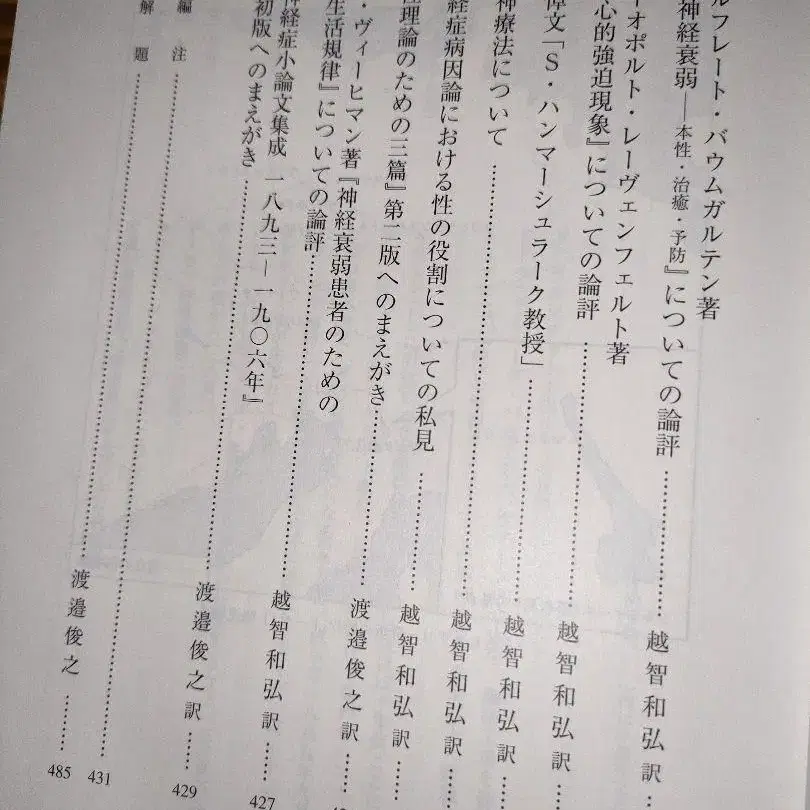 ルフレート・バウムガルテン著
神経衰弱――本性・治癒・予防』についての論評……越智和弘訳…
ーオポルト・レーヴェンフェルト著
心的強迫現象』についての論評……越智和弘訳…
悼文「S・ハンマーシュラーク教授」……越智和弘訳…
神療法について……越智和弘訳…
経症病因論における性の役割についての私見……越智和弘訳…
性理論のための三篇』第二版へのまえがき……渡邉俊之訳…
・ヴィーヒマン著『神経衰弱患者のための
生活規律』についての論評……越智和弘訳……427
神経症小論文集成 一八九三―一九〇六年』
初版へのまえがき……渡邉俊之訳……429
編注……431
解題……渡邉俊之……485